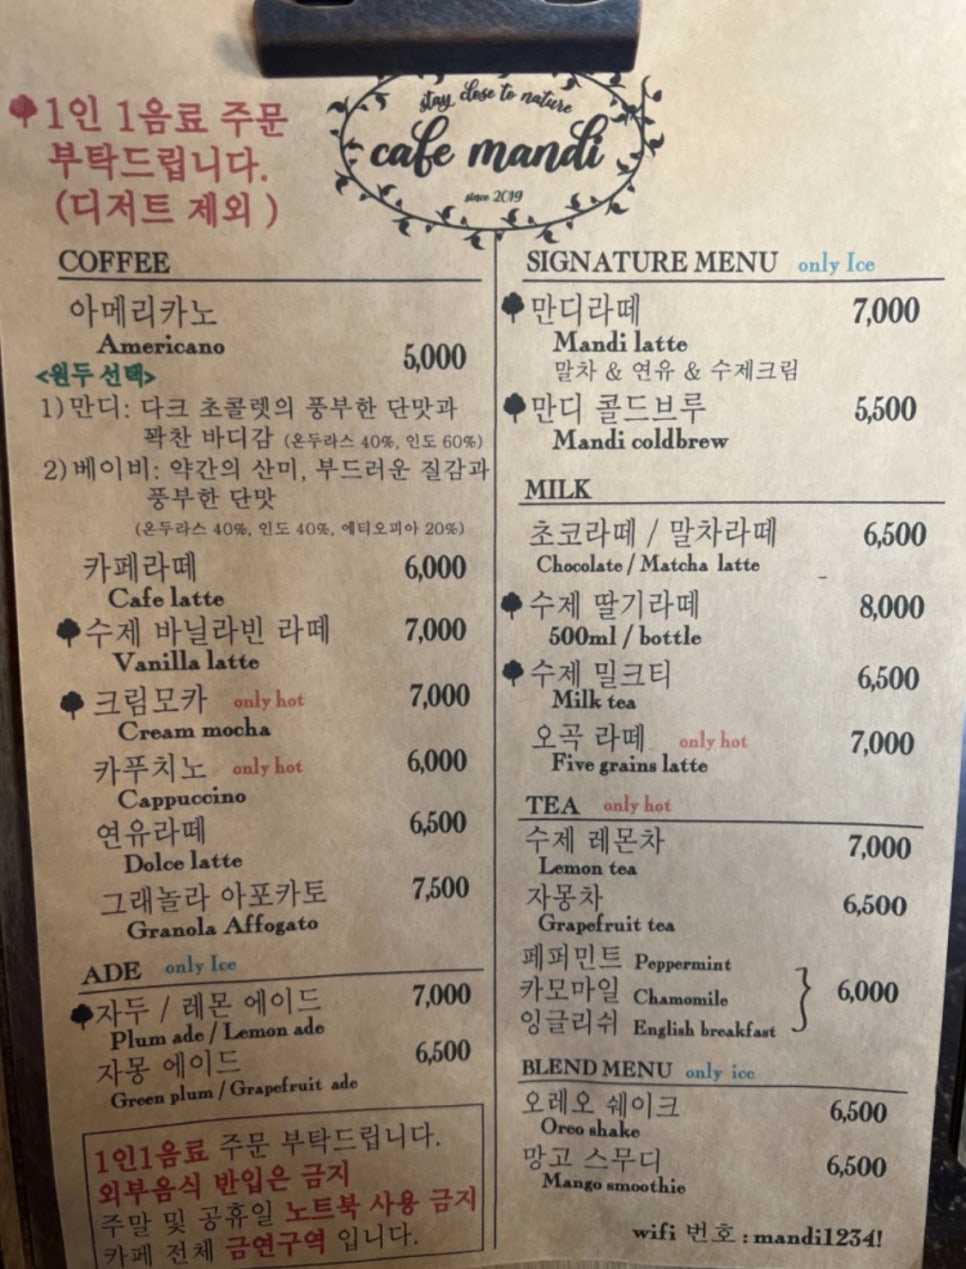 1인 1음료 주문
부탁드립니다.
(디저트 제외)
stay close to nature
cafe mandi
since 2019
COFFEE
아메리카노
Americano 5,000
<원두 선택>
1) 만디: 다크 초콜렛의 풍부한 단맛과
꽉찬 바디감 (온두라스 40%, 인도 60%)
2) 베이비: 약간의 산미, 부드러운 질감과
풍부한 단맛
(온두라스 40%, 인도 40%, 에티오피아 20%)
카페라떼 6,000
Cafe latte
수제 바닐라빈 라떼 7,000
Vanilla latte
크림모카 only hot 7,000
Cream mocha
카푸치노 only hot 6,000
Cappuccino
연유라떼 6,500
Dolce latte
그래놀라 아포카토 7,500
Granola Affogato
ADE only Ice
자두 / 레몬 에이드 7,000
Plum ade / Lemon ade
자몽 에이드 6,500
Green plum / Grapefruit ade
1인1음료 주문 부탁드립니다.
외부음식 반입은 금지
주말 및 공휴일 노트북 사용 금지
카페 전체 금연구역 입니다.
SIGNATURE MENU only Ice
만디라떼 7,000
Mandi latte
말차 & 연유 & 수제크림
만디 콜드브루 5,500
Mandi coldbrew
MILK
초코라떼 / 말차라떼 6,500
Chocolate / Matcha latte
수제 딸기라떼 8,000
500ml / bottle
수제 밀크티 6,500
Milk tea
오곡 라떼 only hot 7,000
Five grains latte
TEA only hot
수제 레몬차 7,000
Lemon tea
자몽차 6,500
Grapefruit tea
페퍼민트 Peppermint
카모마일 Chamomile 6,000
잉글리쉬 English breakfast
BLEND MENU only ice
오레오 쉐이크 6,500
Oreo shake
망고 스무디 6,500
Mango smoothie
wifi 번호 : mandi1234!